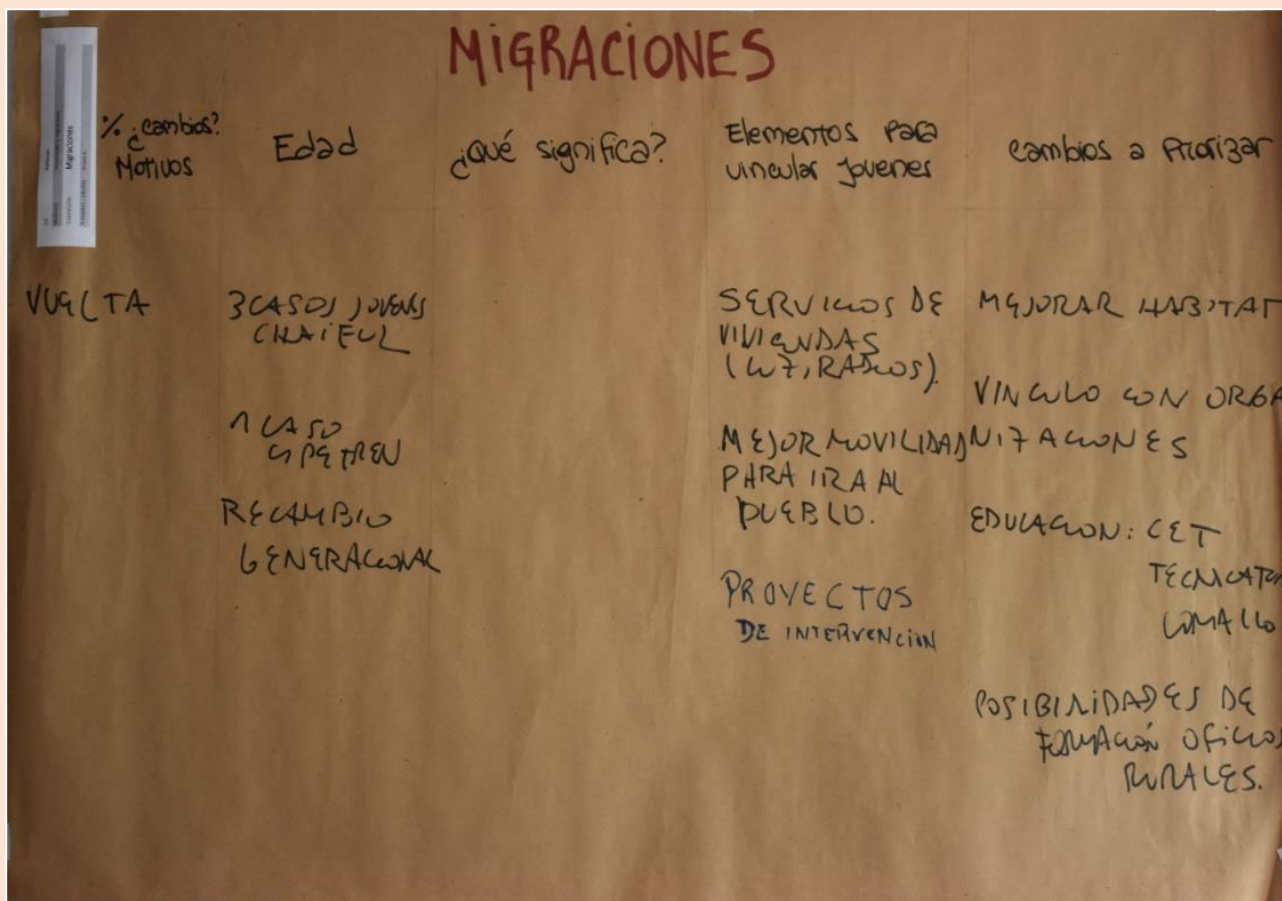 MiGRACiONES
Migraciones
% ¿cambios?
Motivos
Edad
¿Qué significa?
Elementos para
vincular jovenes
cambios a Priorizar
VUELTA
3 CASOS JOVENES
CHAIFUL
1 CASO
RECAMBIO
GENERACIONAL
SERVICIOS DE
VIVIENDAS
(LUZ, RADIOS).
MEJOR MOVILIDAD
PARA IR AL
PUEBLO.
PROYECTOS
DE INTERVENCIÓN
MEJORAR HABITAT
VINCULO CON ORGA
NIZACIONES
EDUCACION: CET
COMALLO
POSIBILIDADES DE
FORMACIÓN OFICIOS
RURALES.